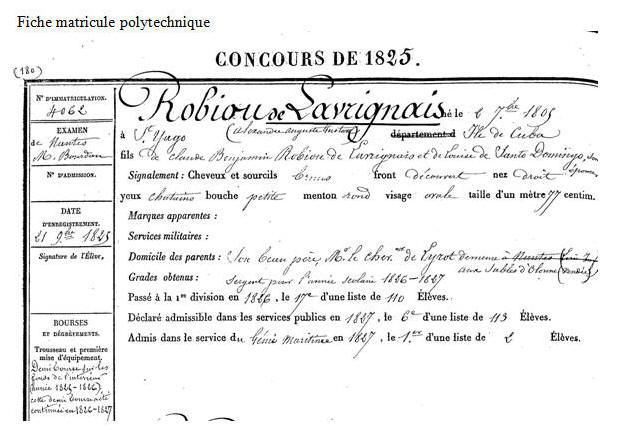 Fiche matricule polytechnique
CONCOURS DE 1825.
(180)
N° D'IMMATRICULATION.
4062
EXAMEN
de Nantes
M. Bourdon
N° D'ADMISSION.
DATE
D'ENREGISTREMENT.
21 9.bre 1825
Signature de l'Élève,
BOURSES
ET DÉGRÈVEMENTS.
Trousseau et première
mise d'équipement.
Demi Bourse sur les
fonds de l'intérieur
(année 1825-1826)
cette demi Bourse a été
continuée en 1826-1827
Robiou de Lavrignais né le 2 7.bre 1805
(Alexandre Auguste Gustave)
à St. Yago département d Ile de Cuba
fils de Claude Benjamin Robiou de Lavrignais et de Louise de Santo Domingo, son
épouse
Signalement : Cheveux et sourcils bruns front découvert nez droit
yeux chatains bouche petite menton rond visage ovale taille d'un mètre 77 centim.
Marques apparentes :
Services militaires :
Domicile des parents : Son beau père, M. le cher. de Lyrot demeure à Nantes
aux Sables d'Olonne (Vendée)
Grades obtenus : Sergent pour l'année scolaire 1826-1827
Passé à la 1re division en 1826, le 17e d'une liste de 110 Élèves.
Déclaré admissible dans les services publics en 1827, le 6e d'une liste de 113 Élèves.
Admis dans le service du Génie Maritime en 1827, le 1.er d'une liste de 2 Élèves.